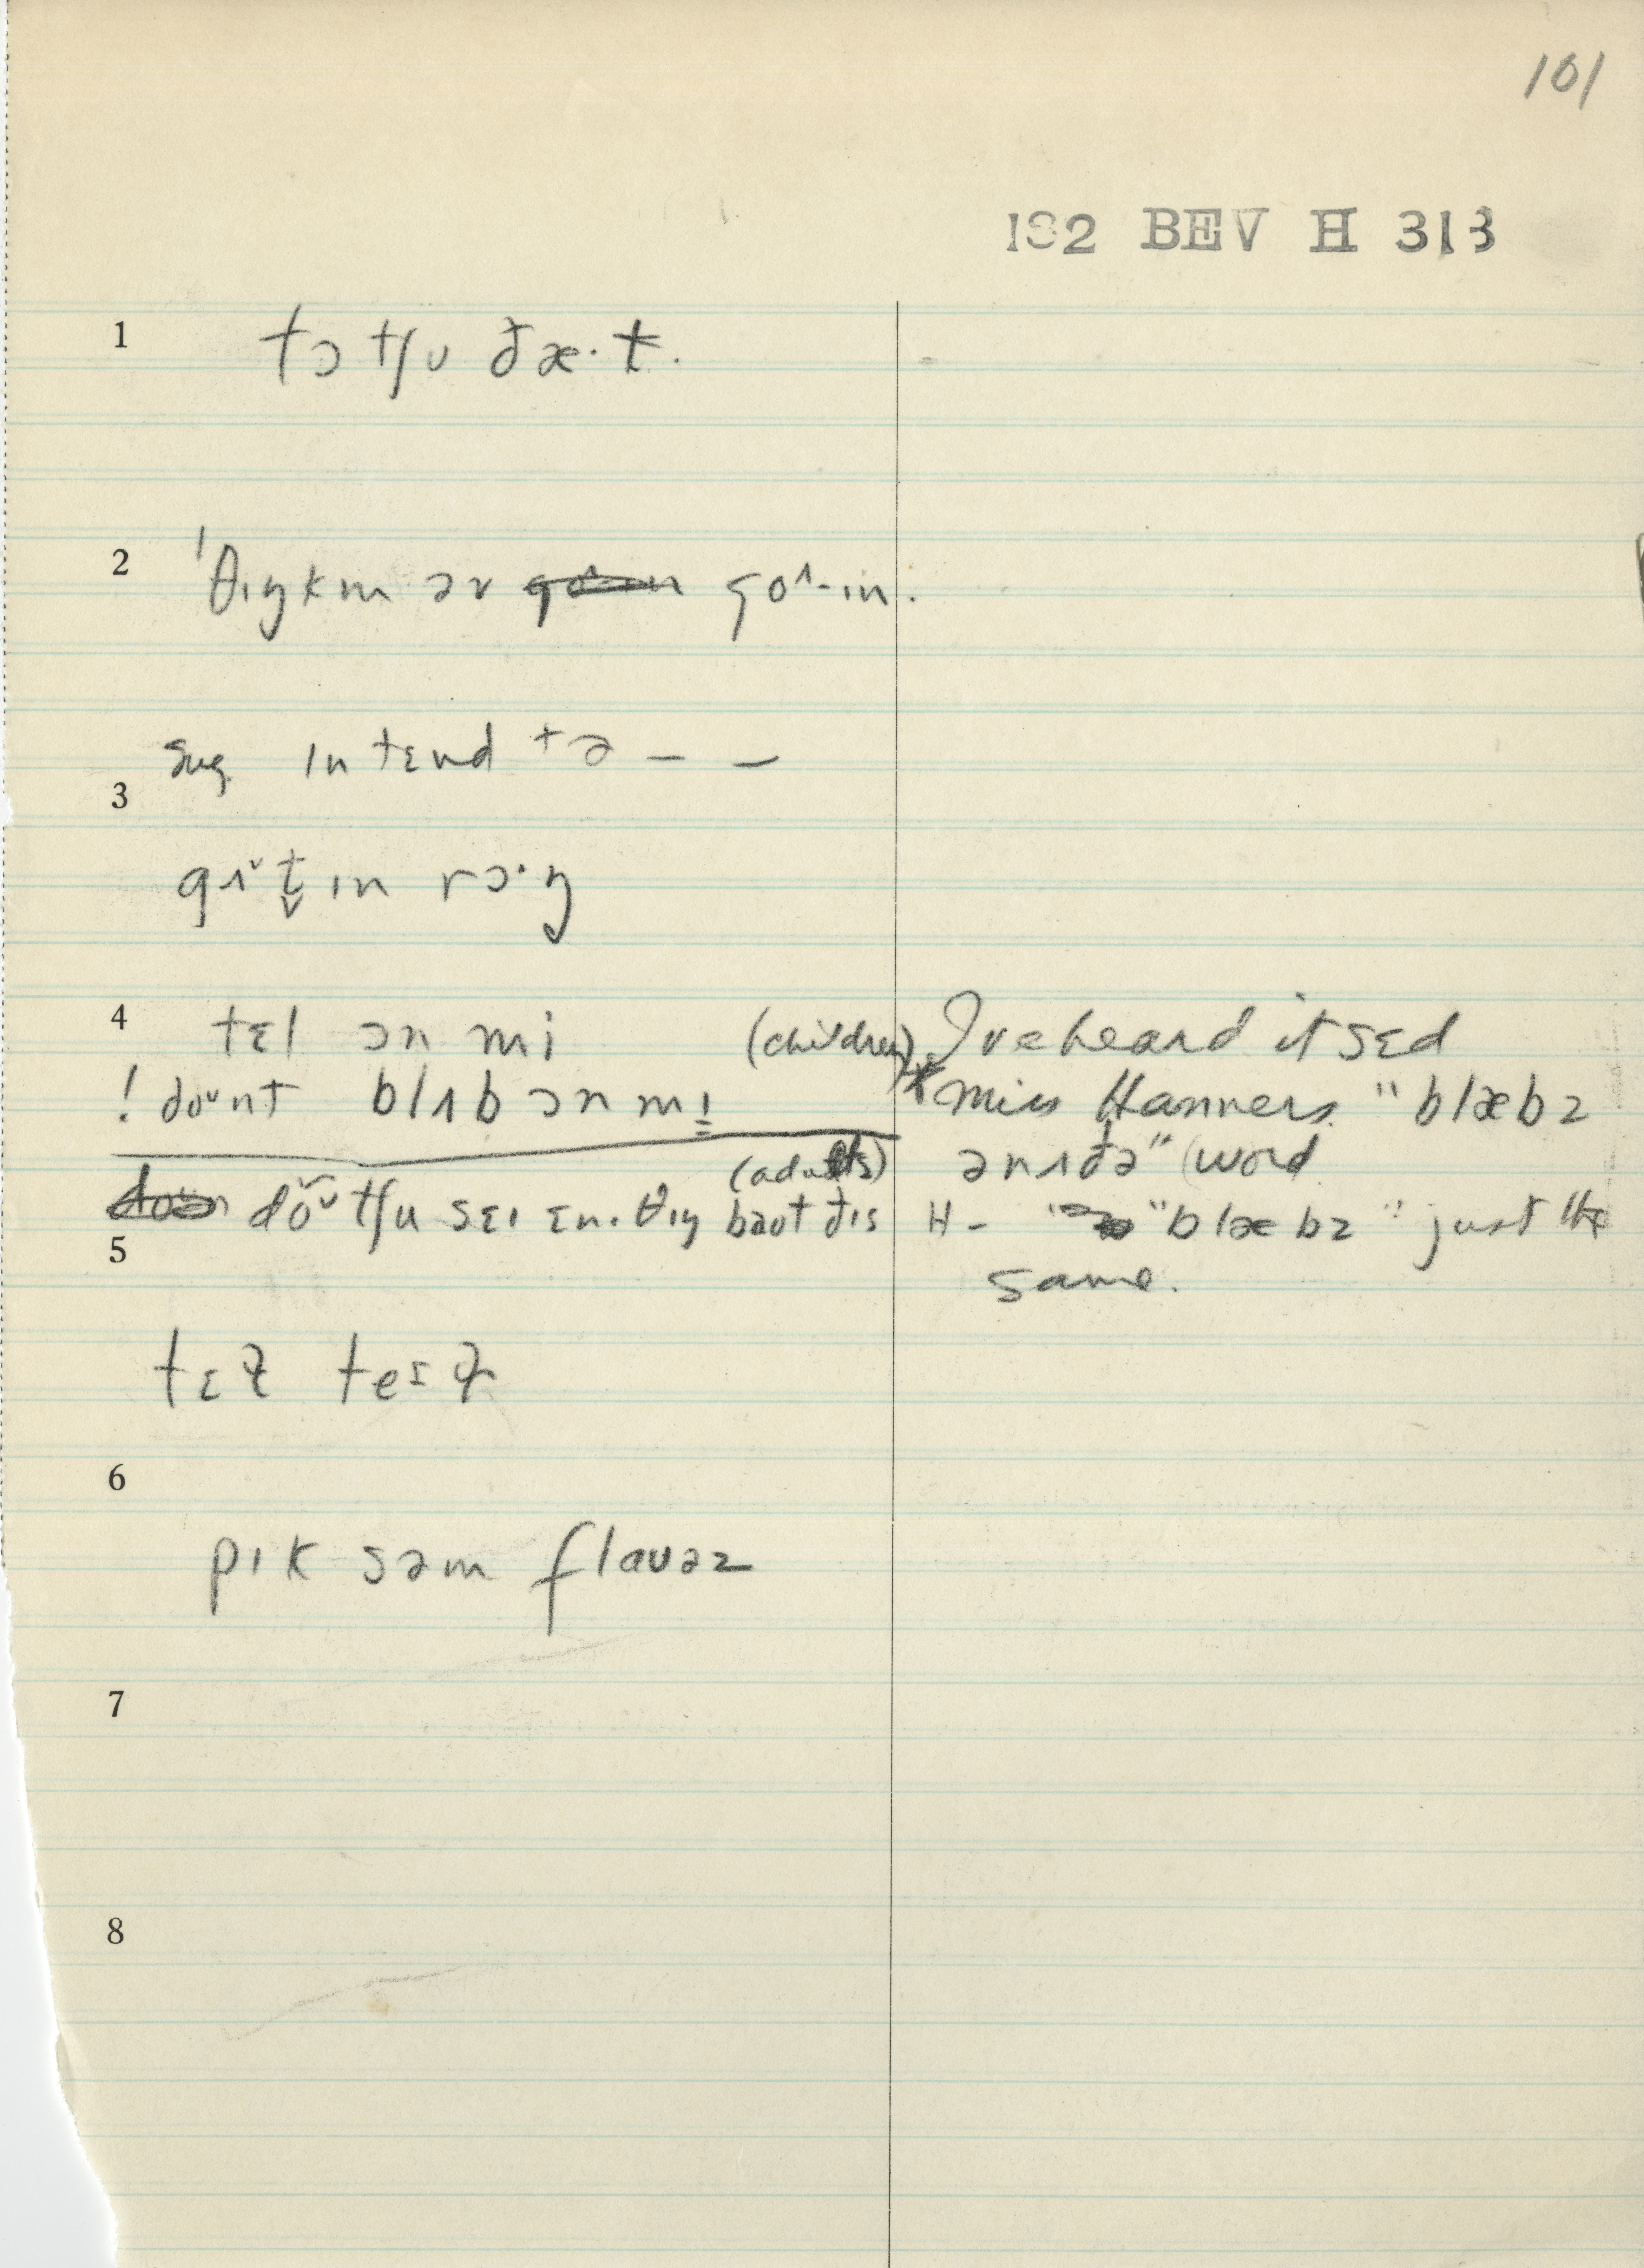 101
182 BEV H 313
1 tɔ tʃu ðæ·t.
2 ˈθɪŋkɪn əv goˆ·ɪn.
sug. ɪntɛnd tə – –
3
gɪˇt̬ɪn rɔ·ŋ
4 tɛl ɔn mi (children)
! doᵘnt blʌb ɔn mi
(adults)
dõᵘ tʃu sɛɪ ɛn·θɪŋ baʊt ðɪs
5
I've heard it sɛd
* Miss Hanners. "blæbz
ənʌðə" (word
H – "blæbz" just the
same.
6
pɪk səm flaʊəz
7
8